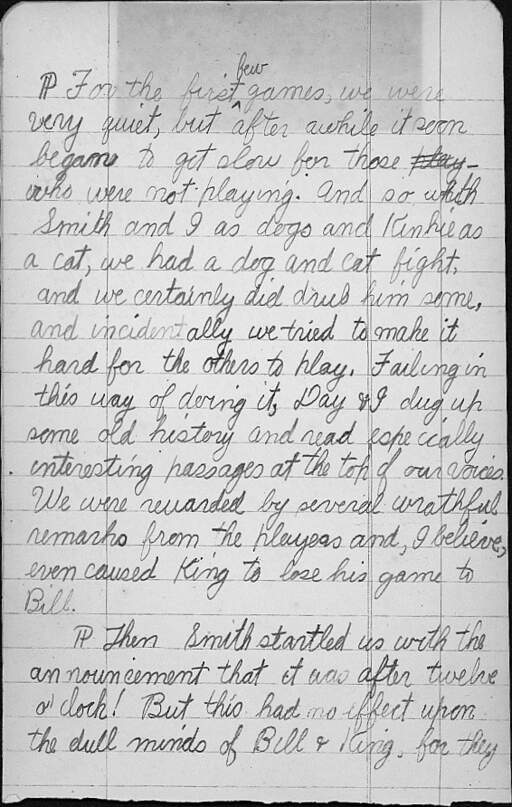 ⁋ For the first few games, we were
very quiet, but after awhile it soon
began to get slow for those play-
who were not playing. And so with
Smith and I as dogs and Kinkie as
a cat, we had a dog and cat fight,
and we certainly did drub him some,
and incidentally we tried to make it
hard for the others to play. Failing in
this way of doing it, Day & I dug up
some old history and read especially
interesting passages at the top of our voices.
We were rewarded by several wrathful
remarks from the players and, I believe,
even caused King to lose his game to
Bill.
⁋ Then Smith startled us with the
announcement that it was after twelve
o'clock! But this had no effect upon
the dull minds of Bill & King, for they